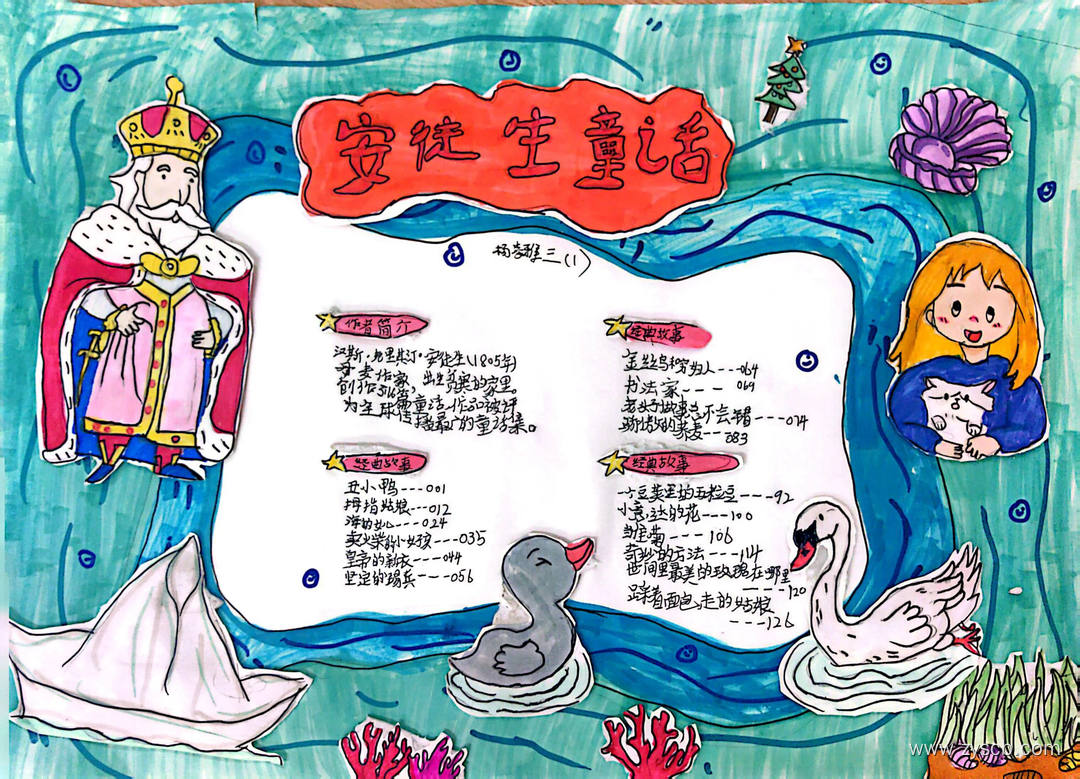 安徒生童话
三(1)
作者简介
汉斯·克里斯汀·安徒生(1805年)
丹麦作家，出生贫寒的家里。
为全球
童话作品被评
播最广的童话集。
经典故事
丑小鸭---001
拇指姑娘---012
海的女儿----024
卖火柴的小女孩---035
皇帝的新衣---044
坚定的锡兵----056
经典故事
金丝鸟和穷妇人---064
书法家--- 069
老头子做事总不会错----074
荞麦---083
经典故事
一个豆荚里的五粒豆----92
小意达的花---100
雏菊---- 106
奇妙的方法----114
世间里最美的玫瑰在哪里
----120
踩着面包走的姑娘
---126
www.zyscp.com